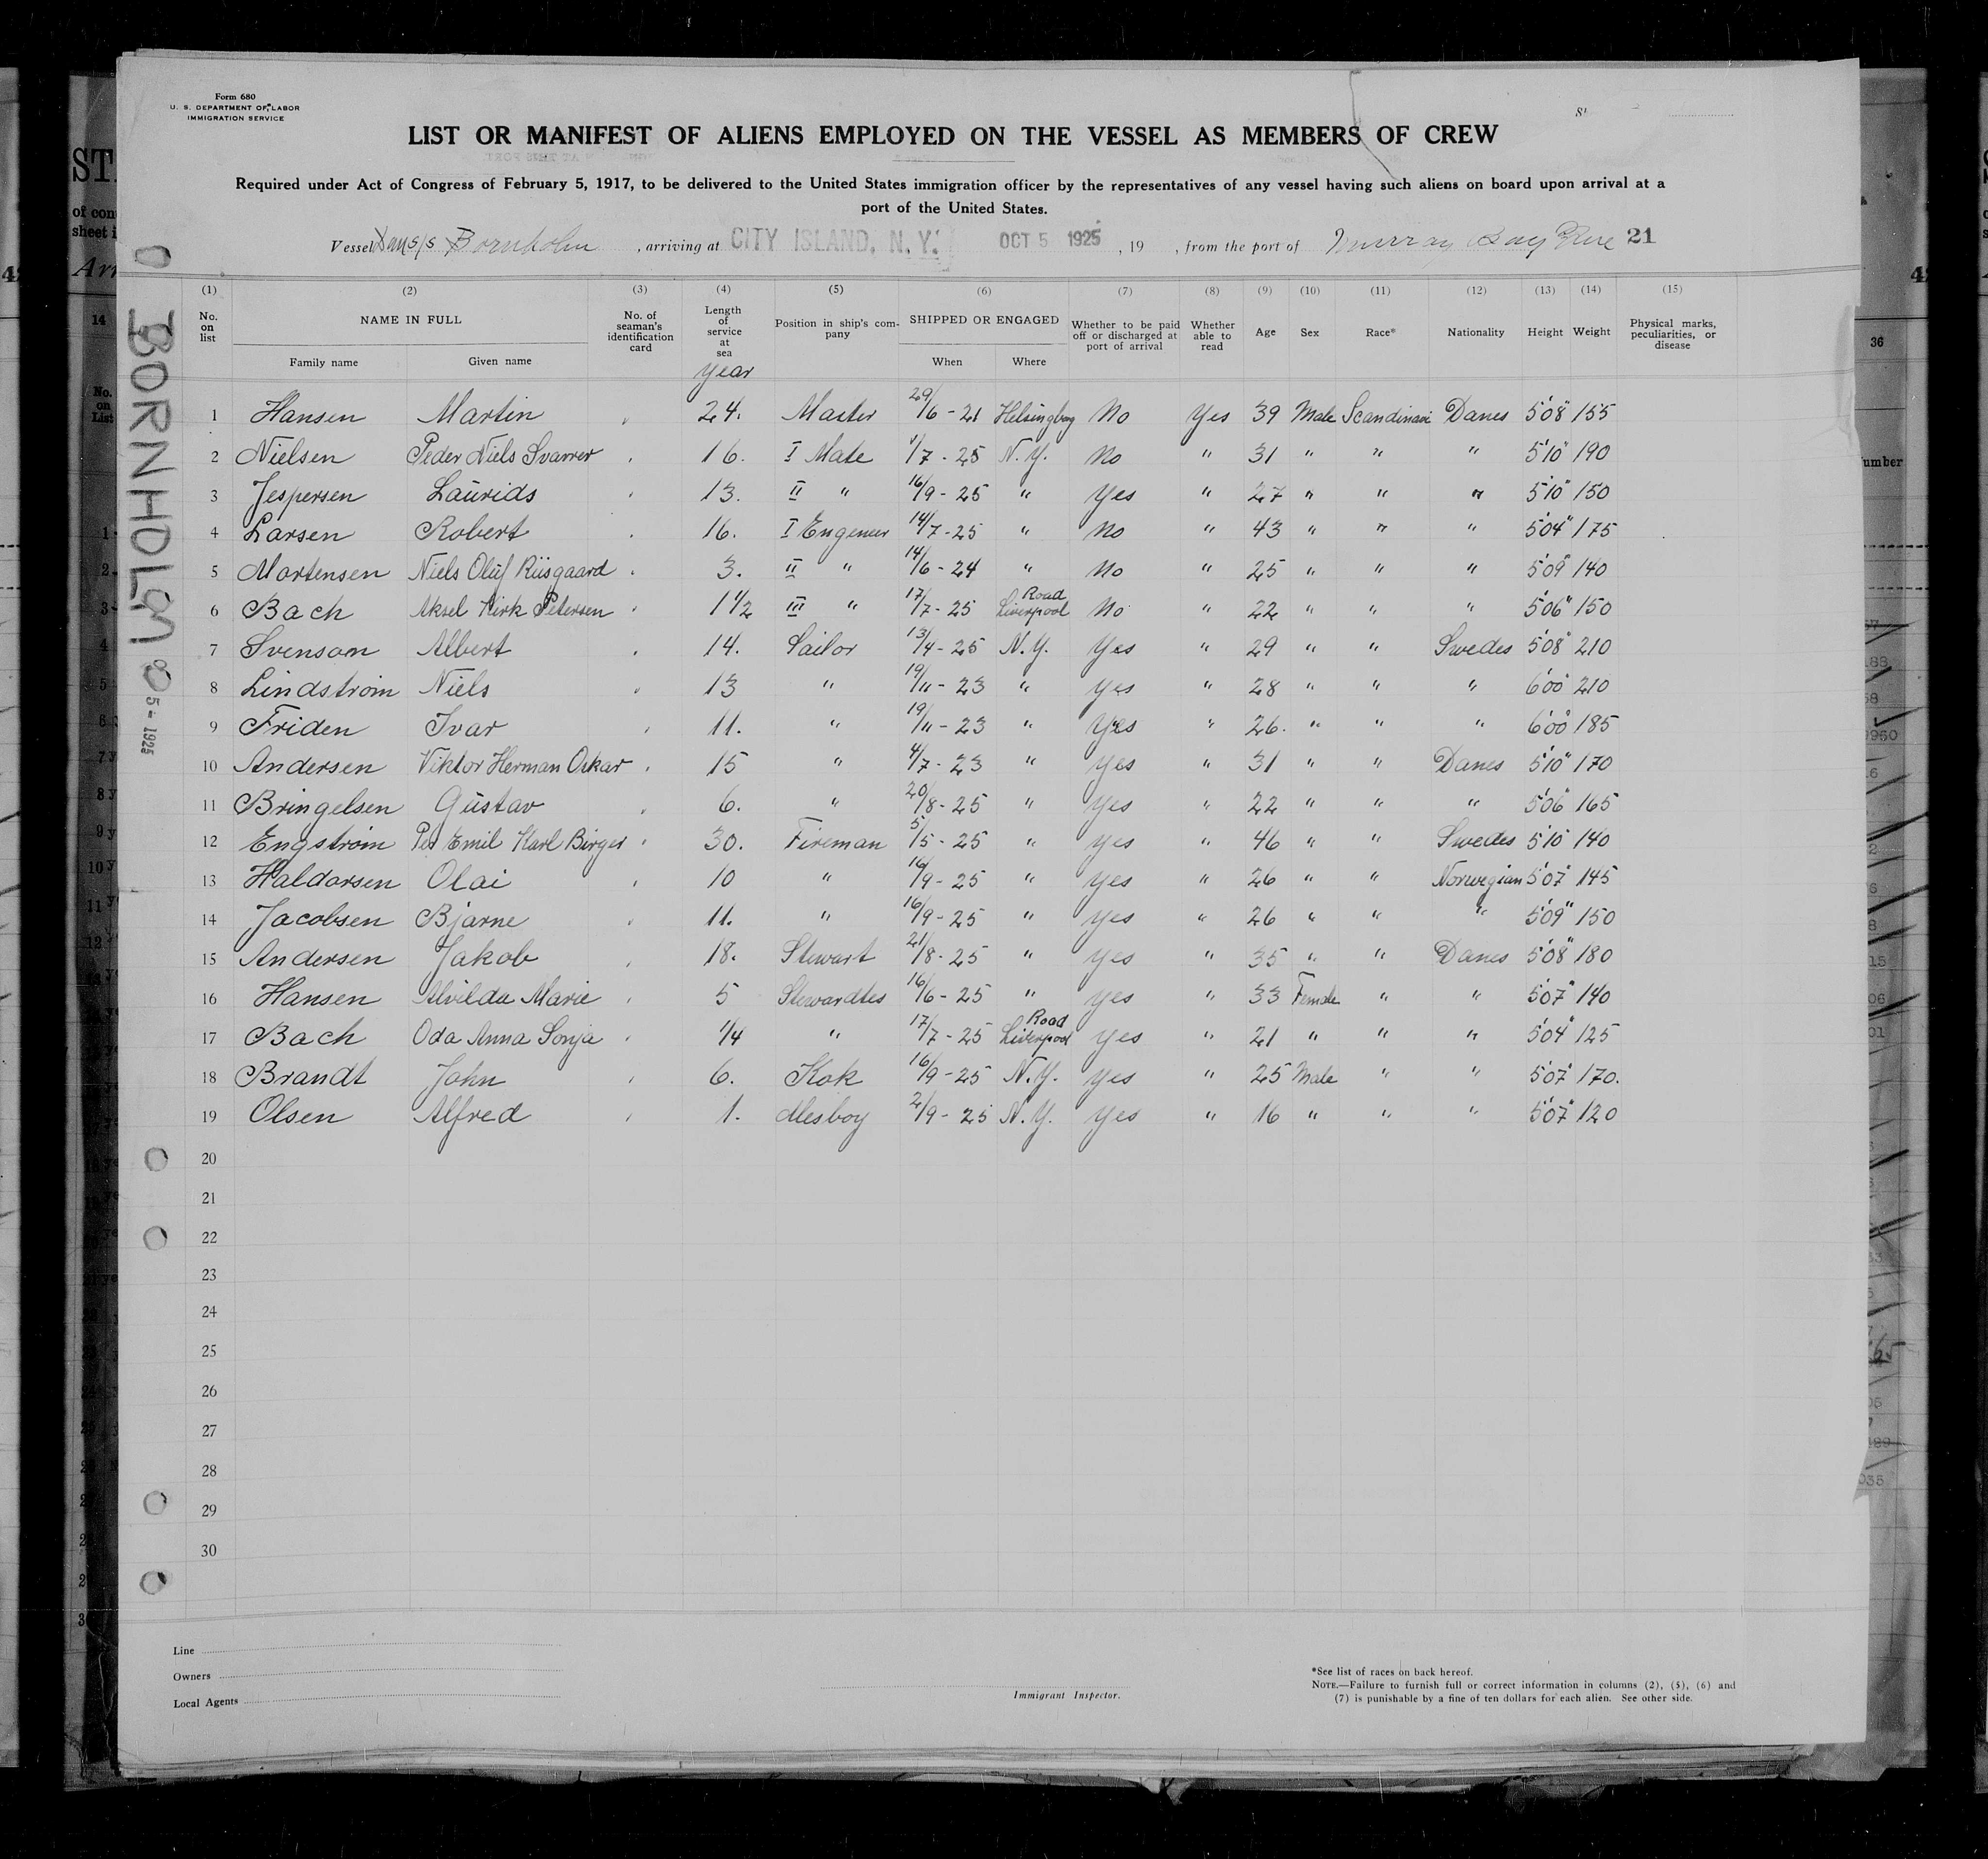 Form 680
U. S. DEPARTMENT OF LABOR
IMMIGRATION SERVICE
LIST OR MANIFEST OF ALIENS EMPLOYED ON THE VESSEL AS MEMBERS OF CREW
Required under Act of Congress of February 5, 1917, to be delivered to the United States immigration officer by the representatives of any vessel having such aliens on board upon arrival at a
port of the United States.
Vessel s/s Bornholm , arriving at CITY ISLAND, N. Y. OCT 5 1925 , 19 , from the port of Murray Bay 21
BORNHOLM
5 - 1925
(1) (2) (3) (4) (5) (6) (7) (8) (9) (10) (11) (12) (13) (14) (15)
No. on list NAME IN FULL Family name Given name No. of seaman's identification card Length of service at sea year Position in ship's company SHIPPED OR ENGAGED When Where Whether to be paid off or discharged at port of arrival Whether able to read Age Sex Race* Nationality Height Weight Physical marks, peculiarities, or disease
1 Hansen Martin 24. Master 29/6 - 21 Helsingborg No Yes 39 Male Scandinavi Danes 5'08" 155
2 Nielsen Peder Niels Svarrer 16. I Mate 1/7 - 25 N.Y. No " 31 " " " 5'10" 190
3 Jespersen Laurids 13. II " 16/9 - 25 " Yes " 27 " " " 5'10" 150
4 Larsen Robert 16. I Engeneer 14/7 - 25 " No " 43 " " " 5'04" 175
5 Mortensen Niels Oluf Riisgaard 3. II " 14/6 - 24 " No " 25 " " " 5'09" 140
6 Bach Aksel Kirk Petersen 1 1/2 III " 17/7 - 25 Road Liverpool No " 22 " " " 5'06" 150
7 Svenson Albert 14. Sailor 13/4 - 25 N.Y. Yes " 29 " " Swedes 5'08" 210
8 Lindstrom Niels 13 " 19/11 - 23 " Yes " 28 " " " 6'00" 210
9 Friden Ivar 11. " 19/11 - 23 " Yes " 26. " " " 6'00" 185
10 Andersen Viktor Herman Oskar 15 " 4/7 - 23 " Yes " 31 " " Danes 5'10" 170
11 Bringelsen Gustav 6. " 20/8 - 25 " Yes " 22 " " " 5'06" 165
12 Engstrom Per Emil Karl Birger 30. Fireman 5/5 - 25 " Yes " 46 " " Swedes 5'10" 140
13 Haldorsen Olai 10 " 16/9 - 25 " Yes " 26 " " Norwegian 5'07" 145
14 Jacobsen Bjarne 11. " 16/9 - 25 " Yes " 26 " " " 5'09" 150
15 Andersen Jakob 18. Stewart 21/8 - 25 " Yes " 35 " " Danes 5'08" 180
16 Hansen Alvilda Marie 5 Stewardtes 16/6 - 25 " Yes " 33 Female " " 5'07" 140
17 Bach Oda Anna Sonja 1/4 " 17/7 - 25 Road Liverpool Yes " 21 " " " 5'04" 125
18 Brandt John 6. Kok 16/9 - 25 N.Y. Yes " 25 Male " " 5'07" 170.
19 Olsen Alfred 1. Mesboy 2/9 - 25 N.Y. Yes " 16 " " " 5'07" 120
20
21
22
23
24
25
26
27
28
29
30
Line
Owners
Local Agents
Immigrant Inspector.
*See list of races on back hereof.
NOTE.—Failure to furnish full or correct information in columns (2), (5), (6) and
(7) is punishable by a fine of ten dollars for each alien. See other side.